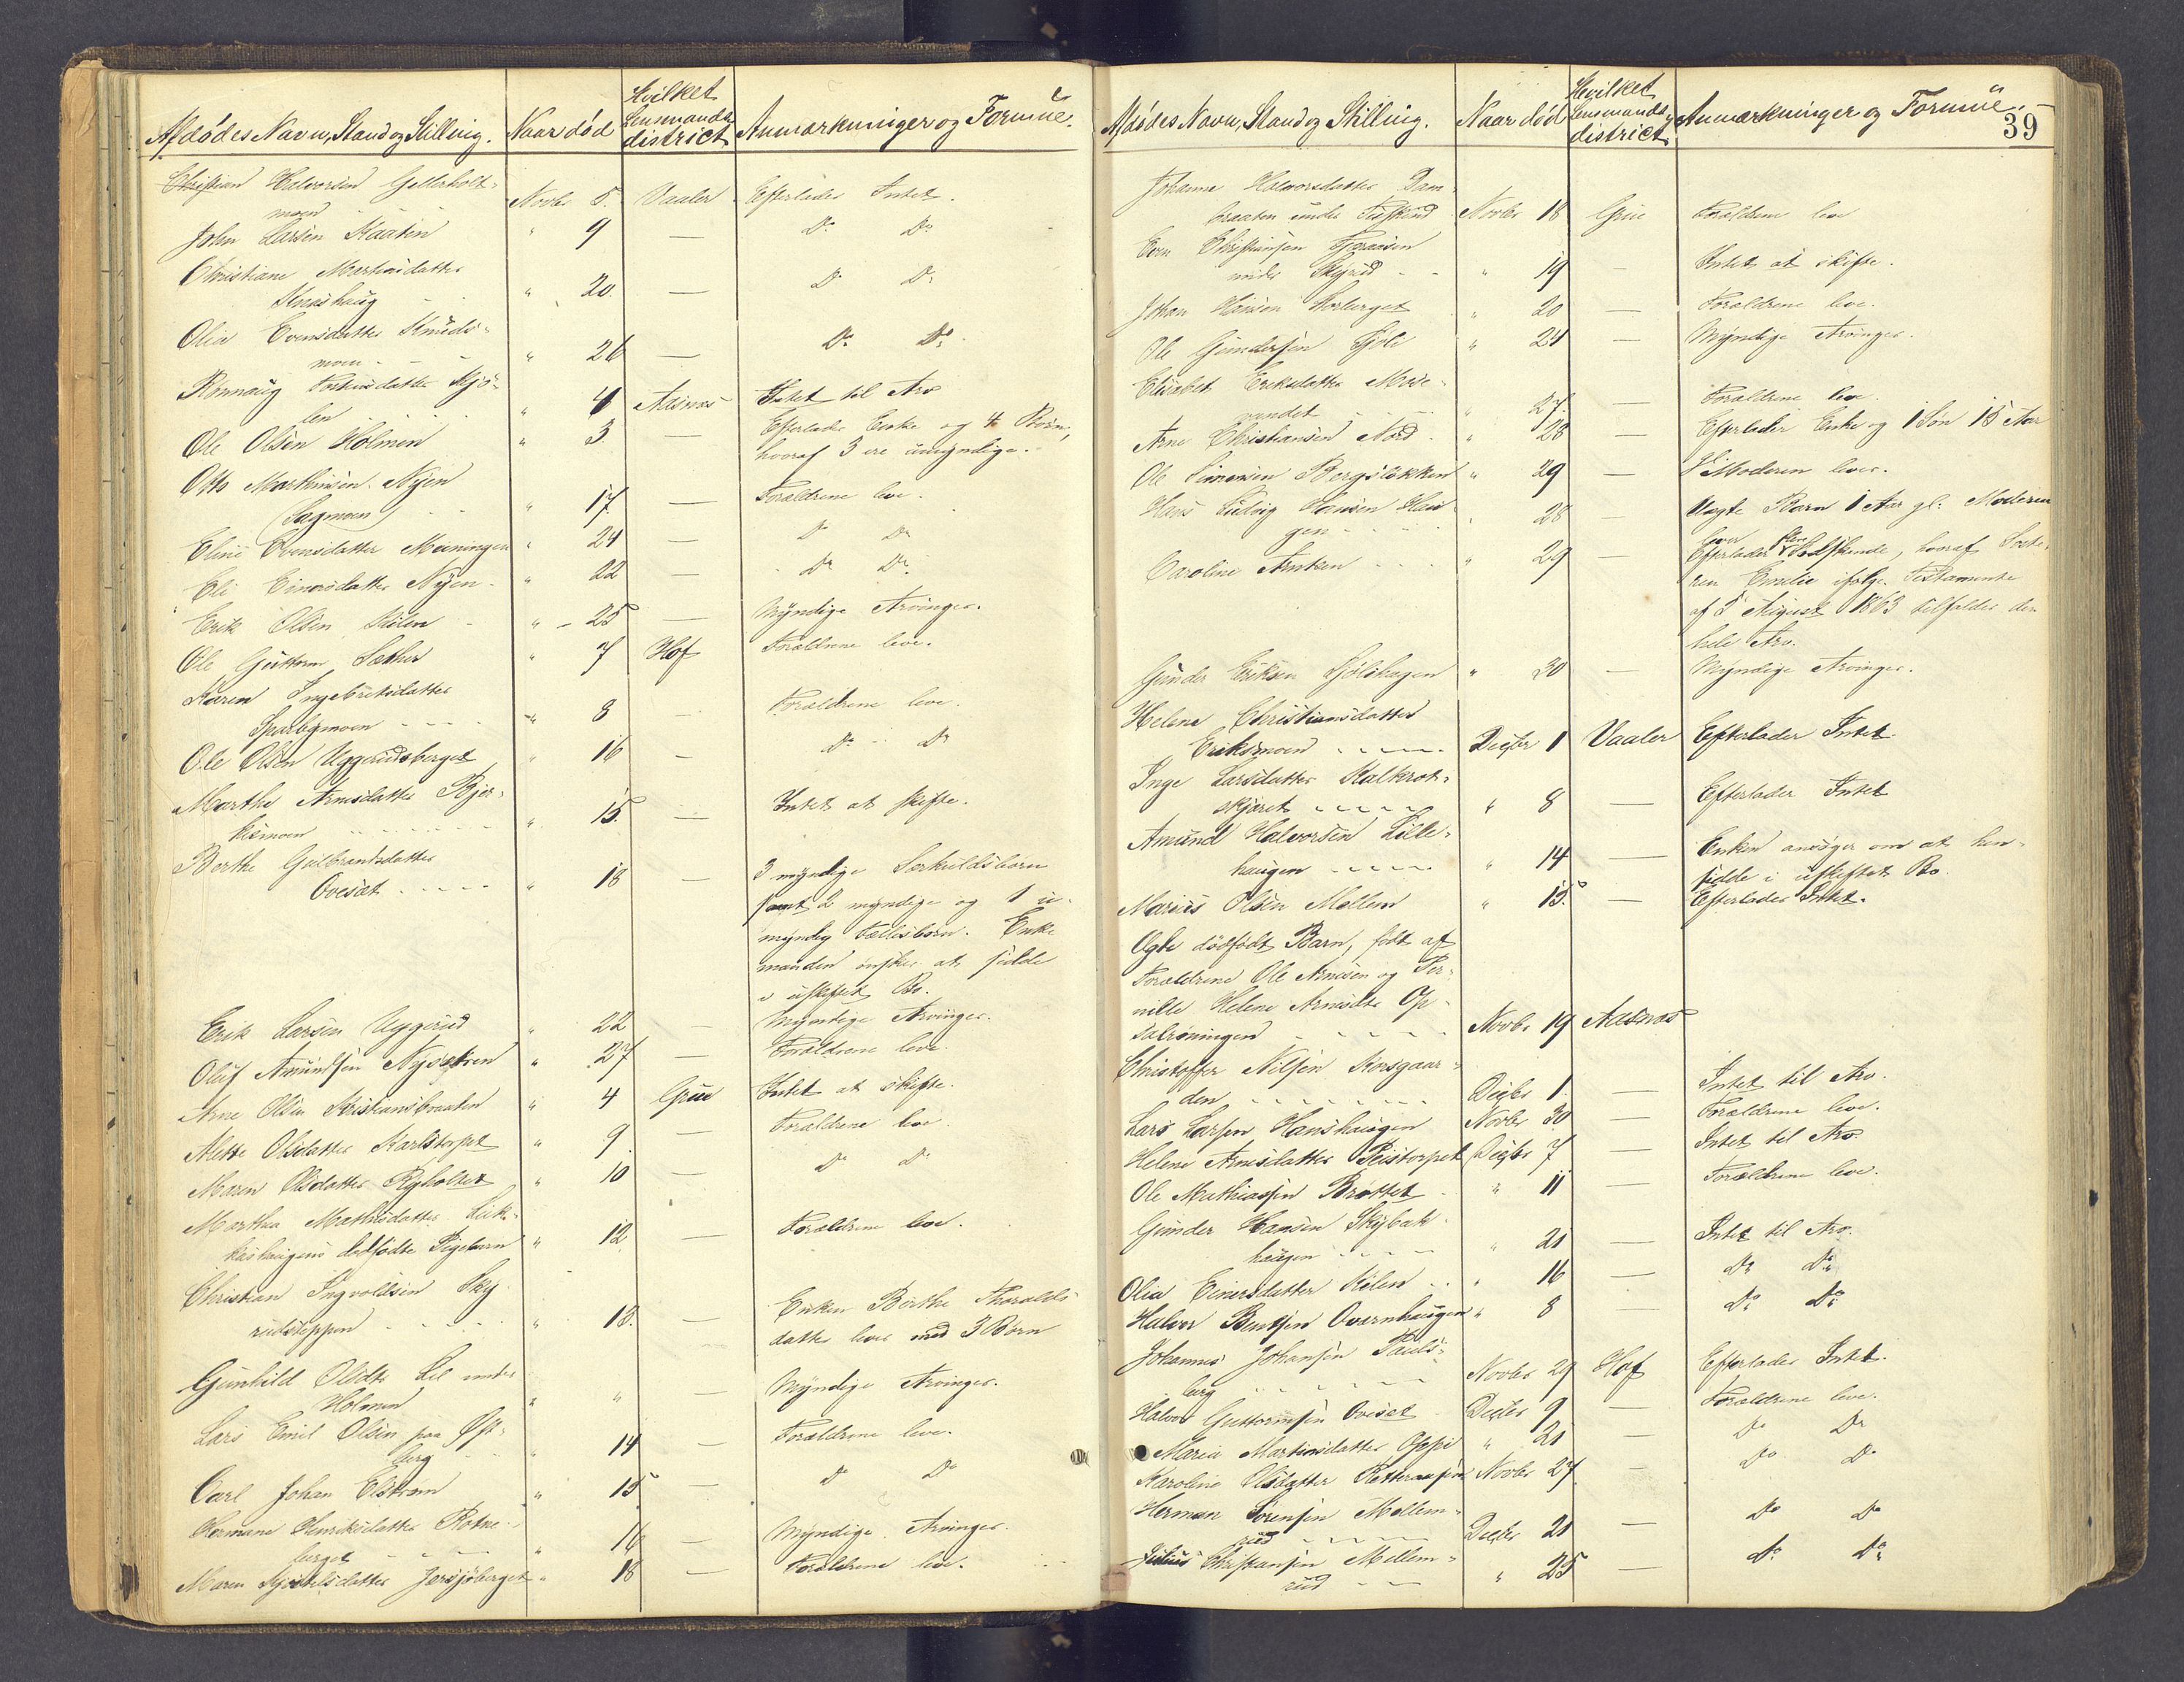 Afdødes Navn, Stand og Stilling. Naar død Hvilket Lensmandsdistrict Anmærkninger og Formue.
Christian Halvorsen Gellerholt-
moen Novbr 5. Vaaler Efterlader Intet.
John Larsen Skaaten " 9 — Do Do
Christiane Martinsdatter
Knashaug " 20. — Do Do
Olia Evensdatter Knuds-
moen " 26 — Do Do
Rønnaug Torkensdatter Kjø-
len " 4 Aasnæs Intet til Arv
Ole Olsen Holmen " 3. — Efterlader Enke og 4 Børn,
hvoraf 3 ere umyndige.
Otto Marthinsen Nyen
(Sagmoen) " 17. — Forældrene leve.
Eline Evensdatter Meiningen " 24 — Do Do
Eli Einarsdatter Nyen " 22 — Do Do
Erik Olsen Kølen " 25 — Myndige Arvinger.
Ole Guttorm Sæther " 7 Hof Forældrene leve.
Karen Ingebretsdatter
Sparbymoen " 8 — Forældrene leve.
Ole Olsen Uggerudsberget " 16 — Do Do
Marthe Arnesdatter Bjer-
kesmoen " 15. — Intet at skifte.
Berthe Gulbrandsdatter
Ovesæt " 18 — 3 myndige Særkuldsbørn
samt 2 myndige og 1 u-
myndig Fællesbørn. Enke
manden ønsker at sidde
i uskiftet Bo.
Erik Larsen Uggerud " 22 — Myndige Arvinger.
Oluf Amundsen Nysætren " 27 — Forældrene leve.
Arne Olsen Kristiansbraaten " 4 Grue Intet at skifte.
Mette Olsdatter Karlstorpet " 9 — Forældrene leve.
Maren Olsdatter Ryholtet " 10 — Do Do
Marthea Mathisdatter Lük-
kashaugens dødfødte Pigebarn " 12 — Forældrene leve.
Christian Ingvoldsen Sky-
rudsteppen " 13. — Enken Berthe Tharalds-
datter lever med 3 Børn
Gunhild Olsdtr Lil under
Holmen " " — Myndige Arvinger.
Lars Emil Olsen paa Øst-
berg " 14 — Forældrene leve.
Carl Johan Elstrøm " 15 — Do Do
Hermane Henriksdatter Rotne-
berget " 16 — Myndige Arvinger.
Maren Kjeldsdatter Jærsjøberget " 18 — Forældrene leve.
Afdødes Navn, Stand og Stilling. Naar død Hvilket Lensmandsdistrict Anmærkninger og Formue.
39
Johanne Halvorsdatter Dam-
braaten under Risskud Novbr 18 Grue Forældrene leve
Even Christiansen Fjeraasen
under Skyrud " 19 — Intet at skifte.
Johan Hansen Storberget " 20 — Forældrene leve.
Ole Gundersen Sjøli " 21 — Myndige Arvinger.
Elisabet Eriksdatter Mose-
vandet " 27. — Forældrene leve.
Arne Christiansen Nord " 28 — Efterlader Enke og 1 Søn 15 Aar
Ole Simensen Bergsløkken " 29 — Moderen lever.
Hans Ludvig Hansen Hau-
gen " 28 — Uægte Barn 1 Aar gl. Moderen
lever
Caroline Amtzen " 29 — Efterlader flere Sødskende, hvoraf Søste-
ren Emilie ifølge Testamente
af 5 August 1863 tilfalder den
hele Arv.
Gunder Eriksen Sjølihagen " 30 — Myndige Arvinger.
Helene Christiansdatter
Eriksmoen Decbr 1 Vaaler Efterlader Intet.
Inge Larsdatter Kalkrot-
skjæret " 8 — Efterlader Intet
Amund Halvorsen Lille-
haugen " 14 — Enken ansøger om at hen-
sidde i uskiftet Bo.
Marius Olsen Mellem " 15. — Efterlader Intet.
Ægte dødfødt Barn, født af
Forældrene Ole Arnesen og Per-
nille Helene Arnesdtr Op-
salrøningen Novbr 19 Aasnæs
Christoffer Nilsen Korsgaar-
den Decbr 1 — Intet til Arv.
Lars Larsen Hanshaugen Novbr 30 — Forældrene leve.
Helene Arnesdatter Reistorpet Decbr 7 — Intet til Arv
Ole Mathiassen Brattet " 11 — Forældrene leve.
Gunder Hansen Skybak-
haugen " 21 — Intet til Arv.
Olia Einersdatter Kølen " 16 — Do Do
Halvor Bentsen Overnhaugen " 8 — Do Do
Johannes Johansen Pauls-
berg Novbr 29 Hof Efterlader Intet.
Halvor Guttormsen Oveset Decbr 9 — Forældrene leve.
Maria Martinsdatter Oppi " 21 — Do Do
Karoline Olsdatter Rotteraasen Novbr 27. — Do Do
Herman Sørensen Mellem-
rud Decbr 21 — Do Do
Julius Christiansen Mellem-
rud " 25 — Do Do